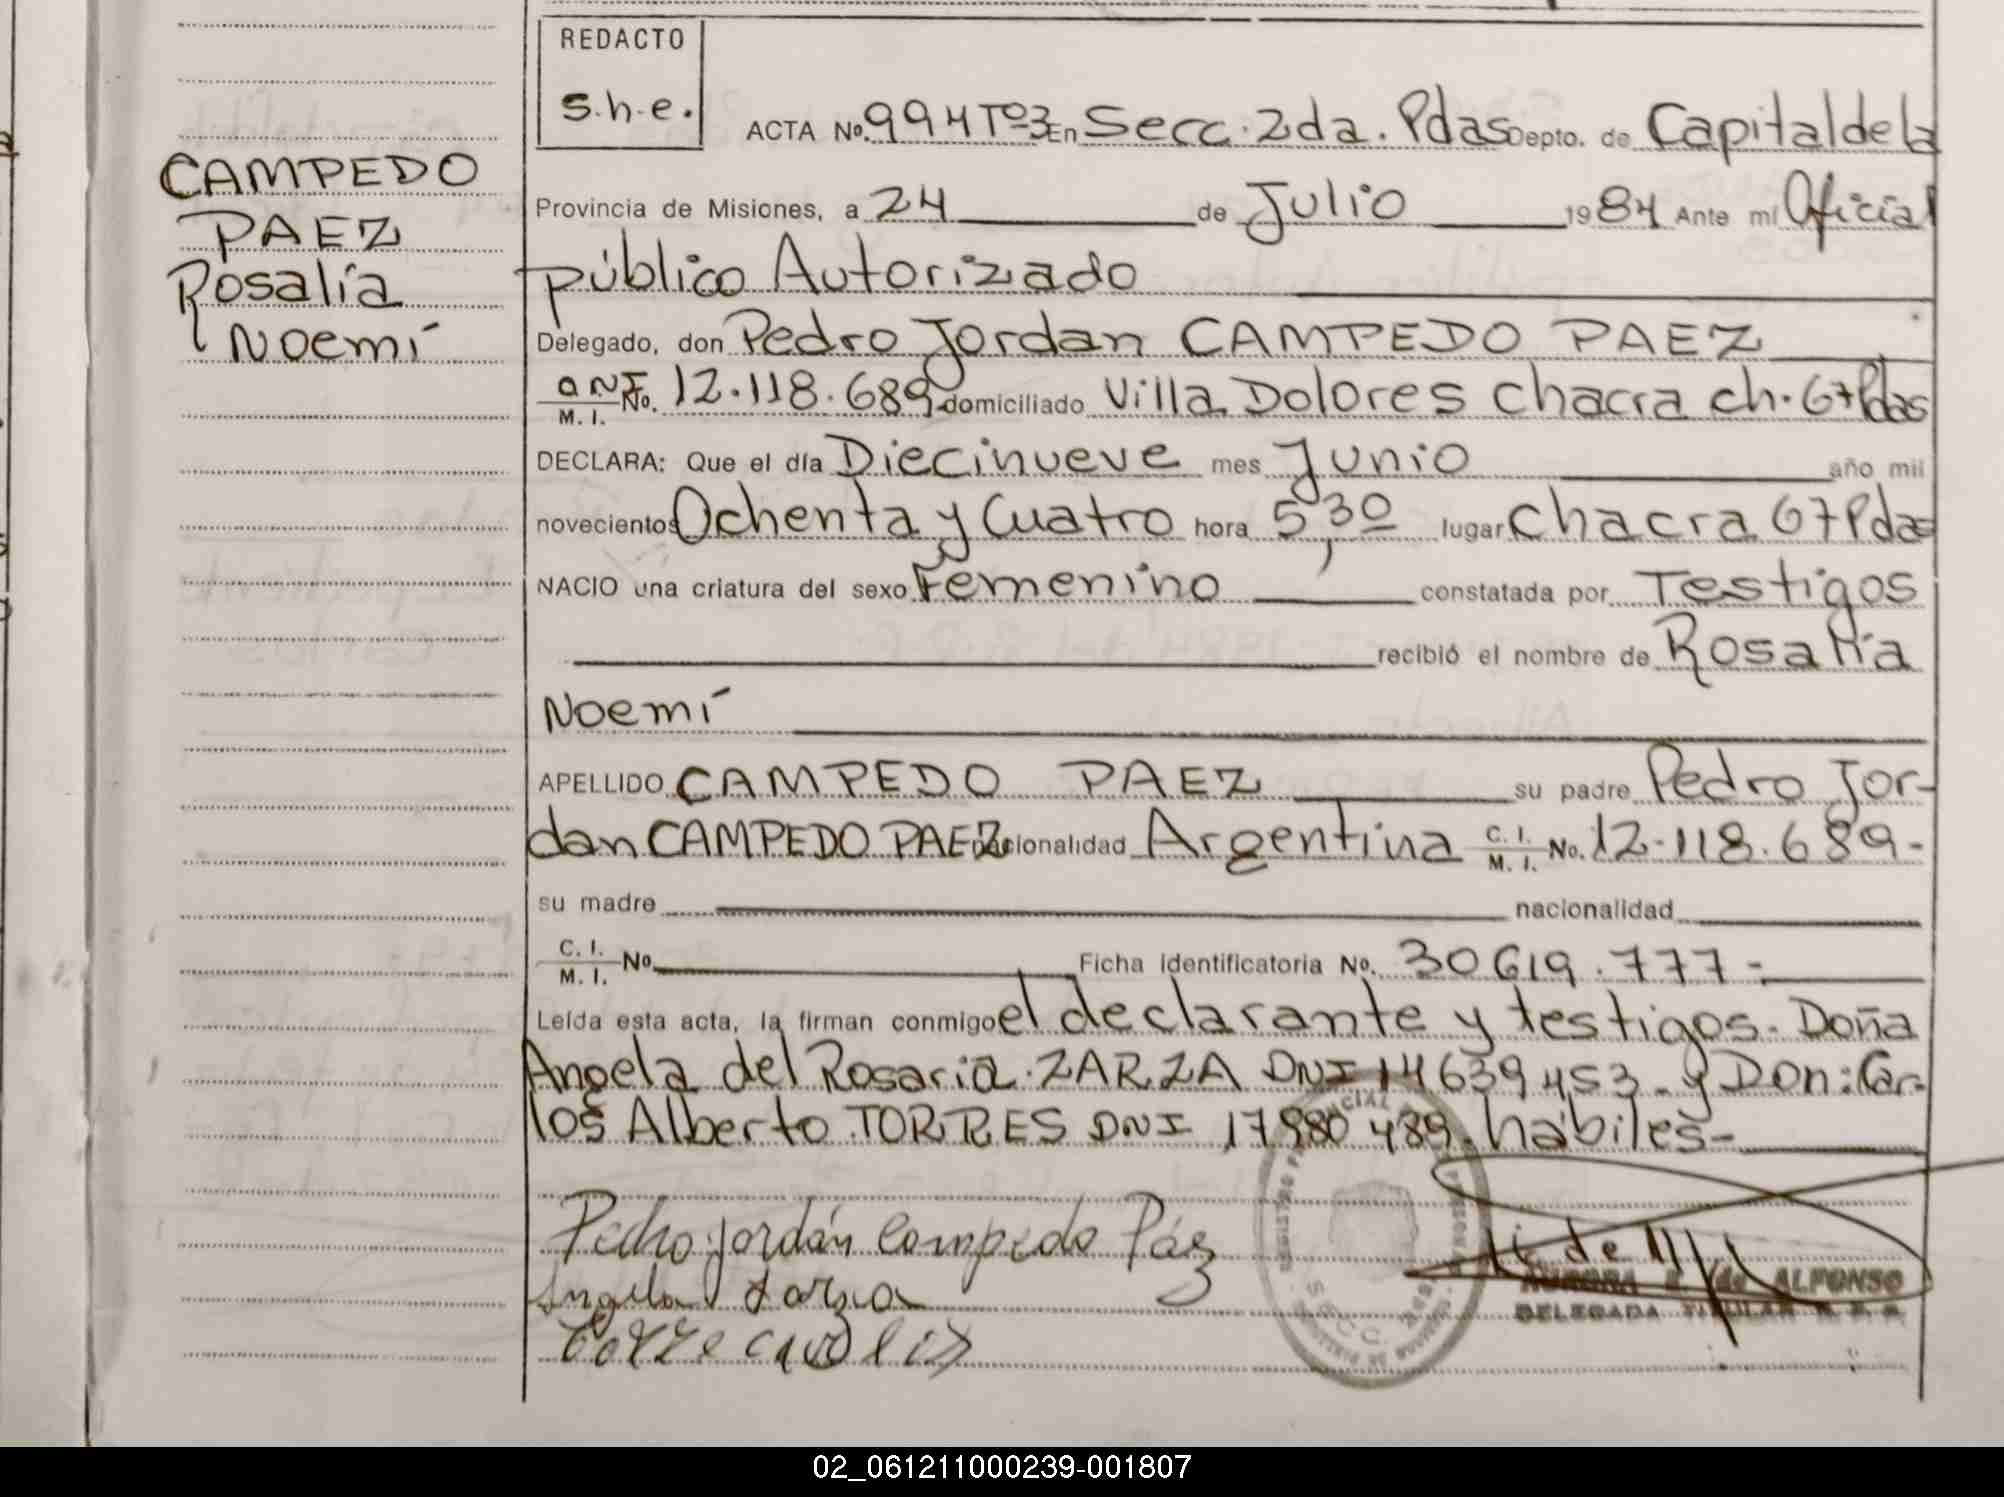 REDACTO
s.h.e.
ACTA No. 994 Tº3 En Secc. 2da. Pdas Depto. de Capital de la
CAMPEDO
PAEZ
Rosalía
Noemí
Provincia de Misiones, a 24 de Julio 1984 Ante mí Oficial
público Autorizado
Delegado, don Pedro Jordan CAMPEDO PAEZ
M. I. No. 12.118.689 domiciliado Villa Dolores chacra ch. 67 Pdas
DECLARA: Que el día Diecinueve mes Junio año mil
novecientos Ochenta y Cuatro hora 5,30 lugar chacra 67 Pdas
NACIO una criatura del sexo Femenino constatada por Testigos
recibió el nombre de Rosalía
Noemí
APELLIDO CAMPEDO PAEZ su padre Pedro Jor-
dan CAMPEDO PAEZ nacionalidad Argentina C. I. M. I. No. 12.118.689-
su madre nacionalidad
C. I. M. I. No Ficha identificatoria No. 30619.777-
Leída esta acta, la firman conmigo el declarante y testigos. Doña
Angela del Rosario ZARZA DNI 14639453 y Don: Car-
los Alberto TORRES DNI 17980489. hábiles-
Pedro Jordán Campedo Páez
Angela Zarza
ALFONSO
DELEGADA TITULAR
02_061211000239-001807